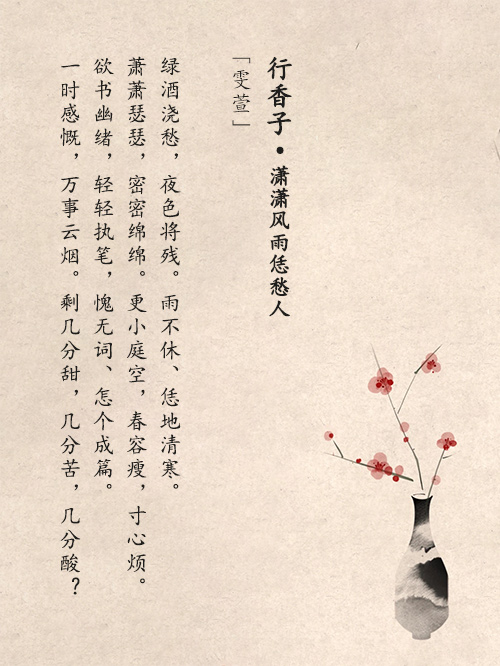 行香子·潇潇风雨恁愁人
「雯萱」
绿酒浇愁，夜色将残。雨不休、恁地清寒。
萧萧瑟瑟，密密绵绵。更小庭空，春容瘦，寸心烦。
欲书幽绪，轻轻执笔，愧无词、怎个成篇。
一时感慨，万事云烟。剩几分甜，几分苦，几分酸？